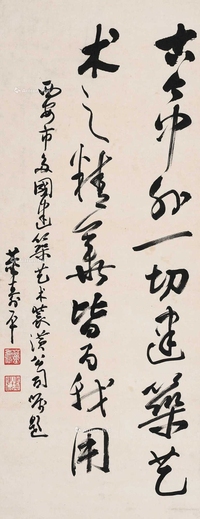 古今中外一切建築艺
术之精華皆为我用
西安市友國建築艺术装潢公司嘱题
董寿平